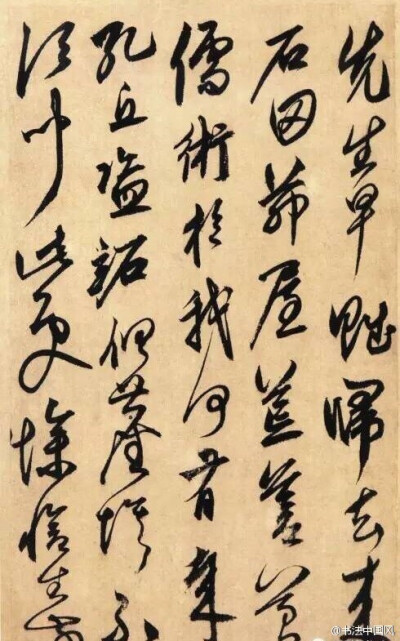 先生早賦歸去来
石田茅屋荒蒼苔
儒術於我何有哉
孔丘盜跖俱塵埃不
須聞此意慘愴生前
@书法中国网